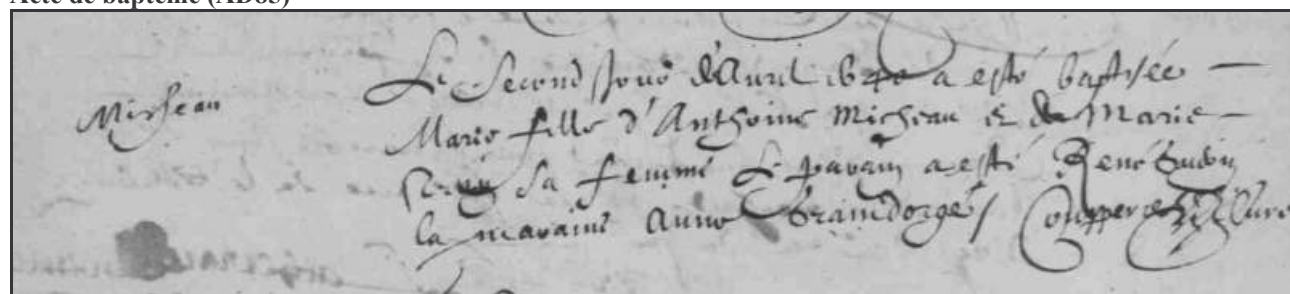 Acte de baptême (AD85)
Micheau
Le Second Jour d'Avril a esté baptisée
Marie fille d'Anthoine Micheau et de Marie
sa femme Le parain a esté René
la maraine Anne Graindorge